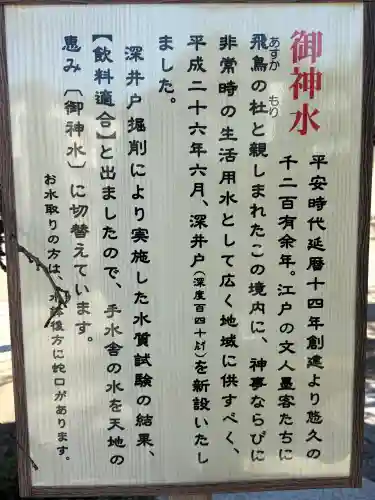 御神水
平安時代延暦十四年創建より悠久の
千二百有余年。江戸の文人墨客たちに
飛鳥の杜と親しまれたこの境内に、神事ならびに
あすか もり
非常時の生活用水として広く地域に供すべく、
平成二十六年六月、深井戸(深度百四十㍍)を新設いたし
ました。
深井戸掘削により実施した水質試験の結果、
【飲料適合】と出ましたので、手水舎の水を天地の
恵み〔御神水〕に切替えています。
お水取りの方は、水鉢後方に蛇口があります。